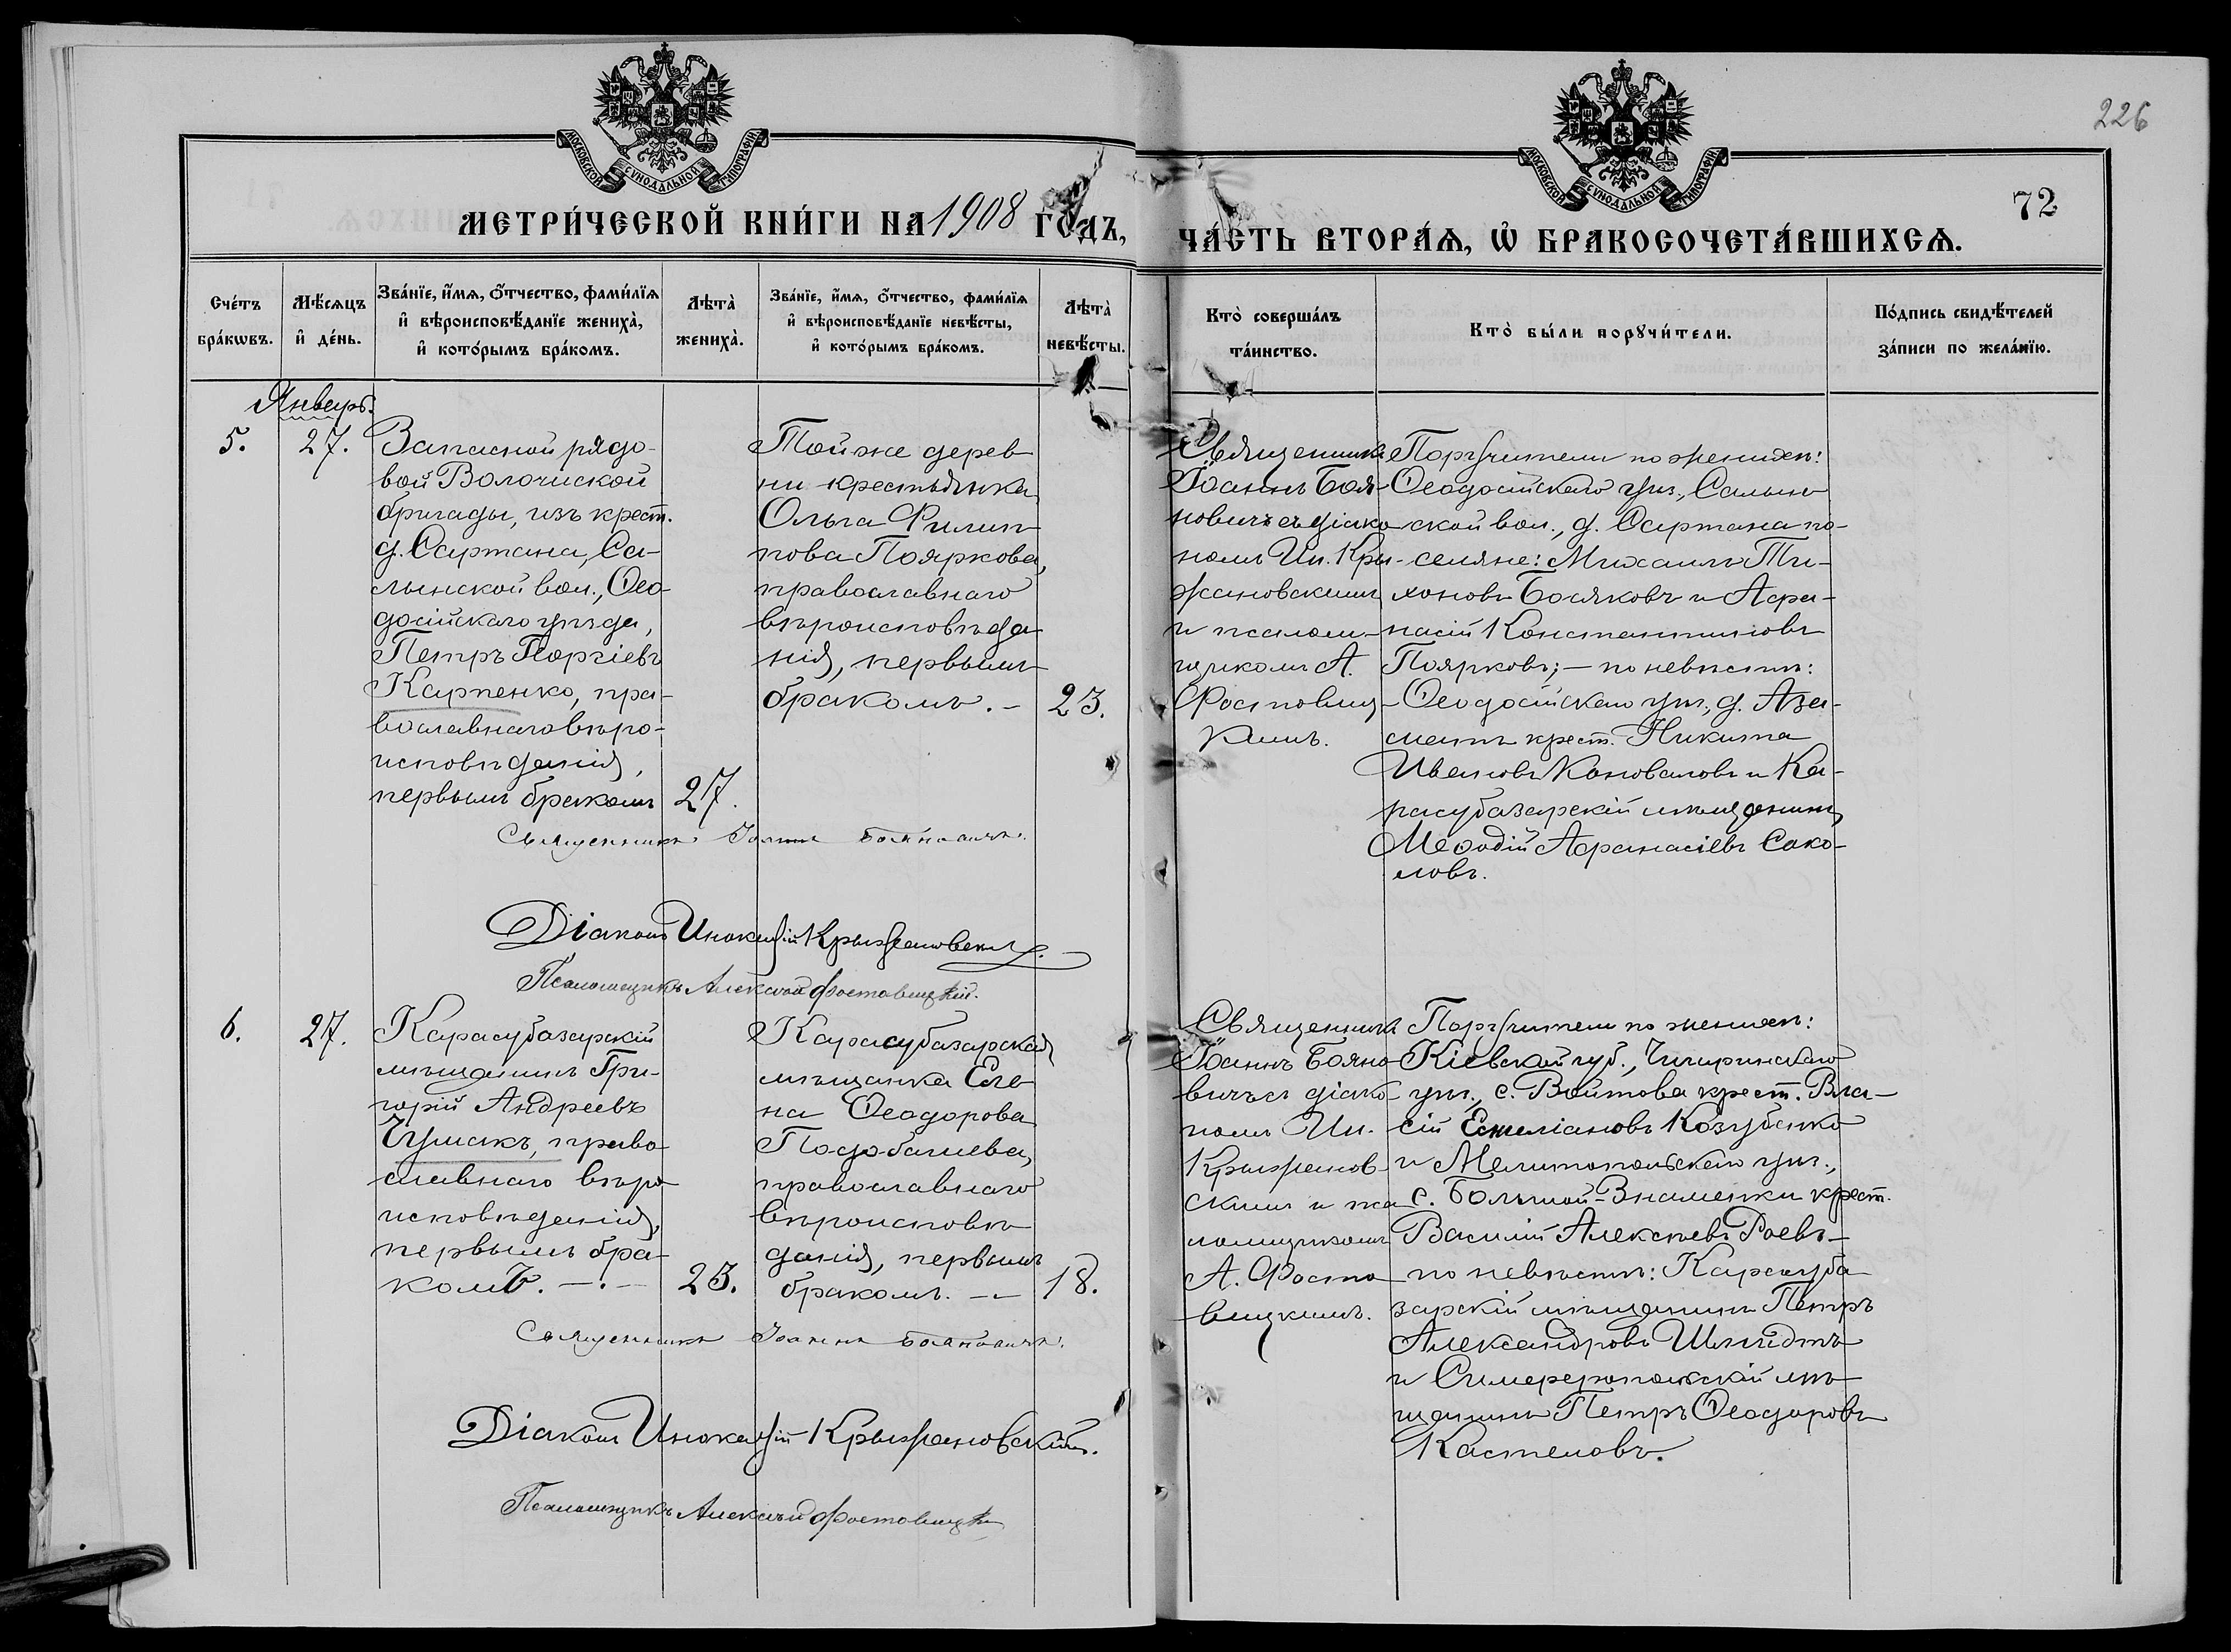 226
МОСКОВСКОЙ СѴНОДАЛЬНОЙ ТИПОГРАФІИ
МОСКОВСКОЙ СѴНОДАЛЬНОЙ ТИПОГРАФІИ
72
МЕТРИ́ЧЕСКОЙ КНИ́ГИ НА 1908 ГОДЪ,
ЧА́СТЬ ВТОРА́Ѧ, Ѽ БРАКОСОЧЕТА́ВШИХСѦ.
Сче́тъ
бра́кѡвъ.
Мѣ́сѧцъ
и҆ де́нь.
Зва́нїе, и҆́мѧ, ѻ҆́тчество, фами́лїѧ
и҆ вѣроисповѣ́данїе жениха̀,
и҆ кото́рымъ бра́комъ.
Лѣта̀
жениха̀.
Зва́нїе, и҆́мѧ, ѻ҆́тчество, фами́лїѧ
и҆ вѣроисповѣ́данїе невѣ́сты,
и҆ кото́рымъ бра́комъ.
Лѣта̀
невѣ́сты.
Кто̀ соверша́лъ
та́инство.
Кто̀ бы́ли порꙋчи́тели.
По́дпись свидѣ́телей
за́писи по жела́нїю.
Январь.
5.
27.
Запасной рядо-
вой Волочиской
бригады, изъ крест.
д. Сартана, Са-
лынской вол., Ѳео-
досійскаго уѣзда,
Петръ Георгіевъ
Карпенко, пра-
вославнаго вѣро-
исповѣданія,
первымъ бракомъ
27.
Той же дерев-
ни крестьянка
Ольга Филип-
пова Пояркова,
православнаго
вѣроисповѣда-
нія, первымъ
бракомъ. –
23.
Священникъ
Іоаннъ Боя-
новичъ съ діако-
номъ Ин. Кры-
жановскимъ
и псалом-
щикомъ А.
Фостовиц-
кимъ.
Поручители по женихѣ:
Ѳеодосійскаго уѣз., Салын-
ской вол., д. Сартана по-
селяне: Михаилъ Ти-
хоновъ Босяковъ и Аѳа-
насій Константиновъ
Поярковъ; – по невѣстѣ:
Ѳеодосійскаго уѣз., д. Аза-
матъ крест. Никита
Ивановъ Коноваловъ и Ка-
расубазарскій мѣщанинъ
Меѳодій Аѳанасіевъ Соко-
ловъ.
Священникъ Іоаннъ Бояновичъ.
Діаконъ Инокентій Крыжановскій.
Псаломщикъ Алексѣй Фостовицкій.
6.
27.
Карасубазарскій
мѣщанинъ Гри-
горій Андреевъ
Чумакъ, право-
славнаго вѣро-
исповѣданія,
первымъ бра-
комъ. – . –
23.
Карасубазарская
мѣщанка Еле-
на Ѳеодорова
Подобашева,
православнаго
вѣроисповѣ-
данія, первымъ
бракомъ. –
18.
Священникъ
Іоаннъ Бояно-
вичъ съ діако-
номъ Ин.
Крыжанов-
скимъ и пса-
ломщикомъ
А. Фосто-
вицкимъ.
Поручители по женихѣ:
Кіевской губ., Чигиринскаго
уѣз., с. Войтова крест. Вла-
сій Емеліановъ Козубенко
и Мелитопольскаго уѣз.,
с. Большой-Знаменки крест.
Василій Алексѣевъ Роевъ –
по невѣстѣ: Карасуба-
зарскій мѣщанинъ Петръ
Александровъ Шмидтъ
и Симферопольскій мѣ-
щанинъ Петръ Ѳеодоровъ
Кастеловъ.
Священникъ Іоаннъ Бояновичъ.
Діаконъ Инокентій Крыжановскій.
Псаломщикъ Алексѣй Фостовицкій